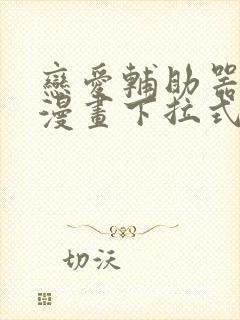 戀愛輔助器
漫畫下拉式
切沃